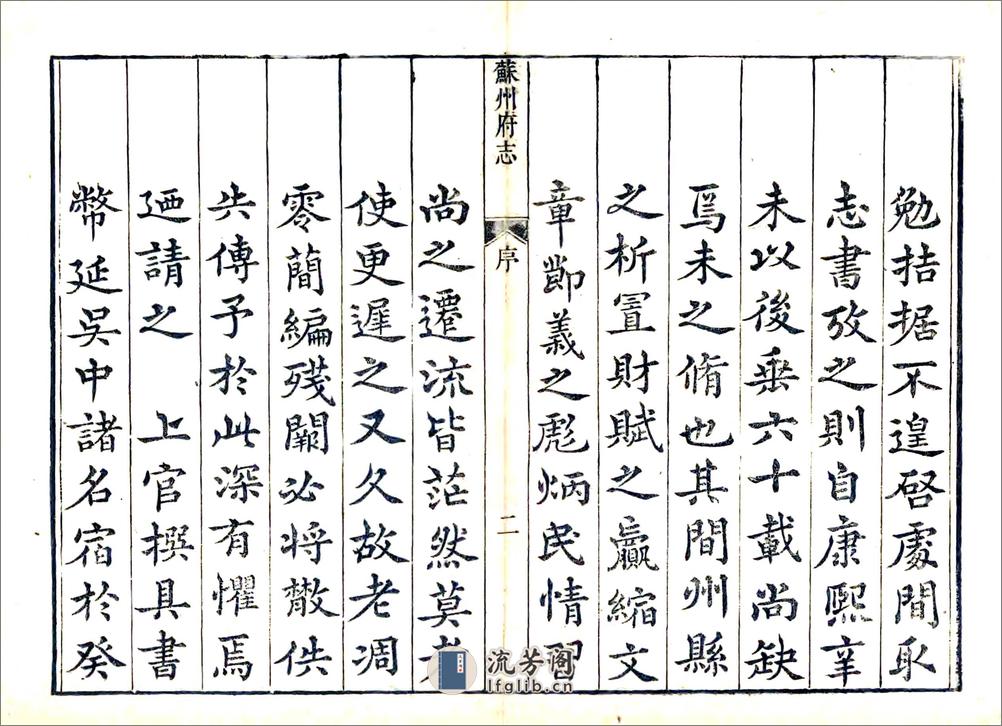 勉拮据不遑啓處間取
志書攷之則自康熙辛
未以後垂六十載尚缺
焉未之脩也其間州縣
之析置財賦之贏縮文
章節義之彪炳民情習
蘇州府志
序
二
尚之遷流皆茫然莫考
使更遲之又久故老凋
零蕳編殘闕必將散佚
失傳予於此深有懼焉
廼請之　上官撰具書
幣延吳中諸名宿於癸
流芳阁
lfglib.cn